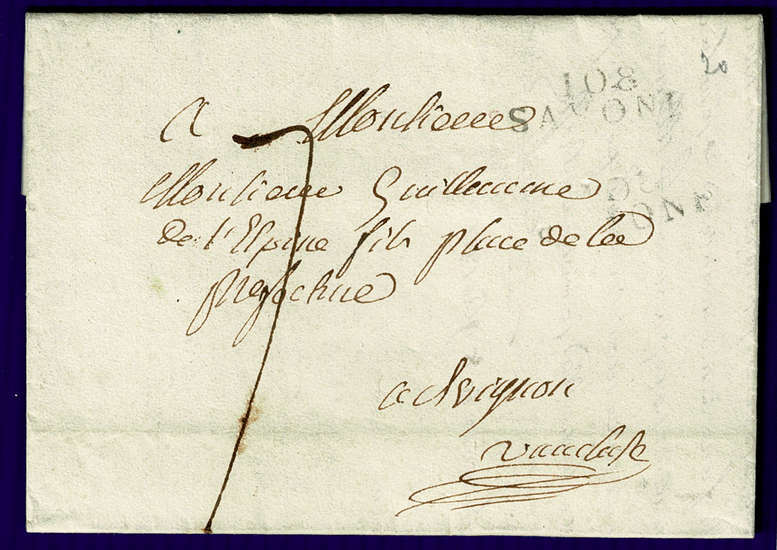 20
108
SAVONE
a Monsieur
108
SAVONE
7
Monsieur Guillaume
de l'Espine fils place de la
prefecture
a Avignon
vaucluse